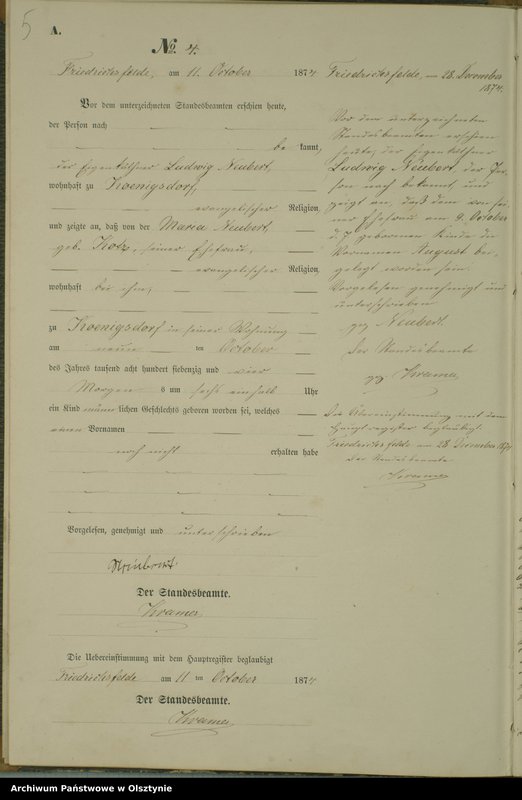 5
A.
No. 4.
Friedrichsfelde, am 11. October 1874
Vor dem unterzeichneten Standesbeamten erschien heute,
der Person nach
be kannt,
der Eigenkäthner Ludwig Neubert,
wohnhaft zu Koenigsdorf,
evangelischer Religion
und zeigte an, daß von der Maria Neubert,
geb. Kotz, seiner Ehefrau,
evangelischer Religion,
wohnhaft bei ihm,
zu Koenigsdorf in seiner Wohnung
am neun ten October
des Jahres tausend acht hundert siebenzig und vier
Morgens um sechs einhalb Uhr
ein Kind männlichen Geschlechts geboren worden sei, welches
einen Vornamen
noch nicht erhalten habe
Vorgelesen, genehmigt und unterschrieben
Neubert
Der Standesbeamte.
Kramer
Die Uebereinstimmung mit dem Hauptregister beglaubigt
Friedrichsfelde am 11 ten October 1874
Der Standesbeamte.
Kramer
Friedrichsfelde, am 28. December
1874.
Vor dem unterzeichneten
Standesbeamten erschien
heute, der Eigenkäthner
Ludwig Neubert, der Per-
son nach bekannt und
zeigt an, daß dem von sei-
ner Ehefrau am 9. October
d. J. geborenen Kinde die
Vornamen August bei-
gelegt worden sei.
Vorgelesen genehmigt und
unterschrieben
gez Neubert.
Der Standesbeamte
gez. Kramer,
Die Übereinstimmung mit dem
Hauptregister beglaubigt.
Friedrichsfelde am 28. December 1874
Der Standesbeamte
Kramer
Archiwum Państwowe w Olsztynie